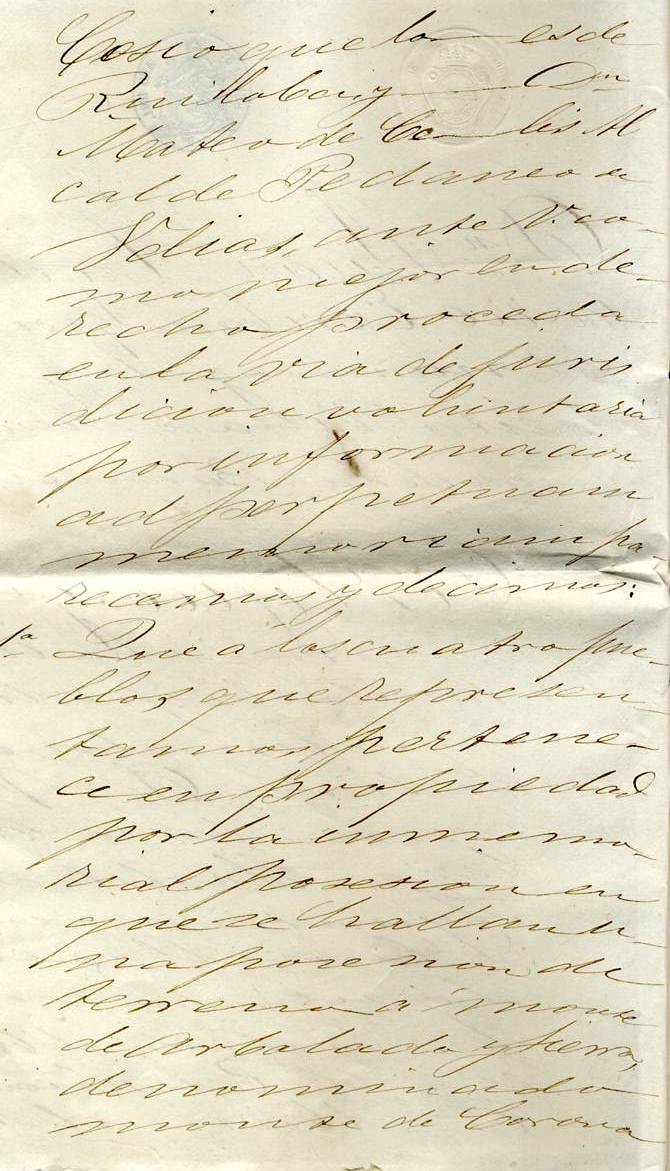 Cosio que lo es de
Ruiloba y Dn
Mateo de Ce lis Al
calde Pedaneo de
Udias, ante V. co-
mo mejor en de-
recho proceda
en la via de juris
dicion voluntaria
por informacion
ad perpetuam
memoriam pa-
recemos y decimos:
1ª Que a los cuatro pue-
blos que represen-
tamos pertene-
ce en propiedad
por la inmemo-
rial posesion en
que se hallan u-
na porcion de
terreno a monte
de arbolado y tierra,
denominado
monte de Corona